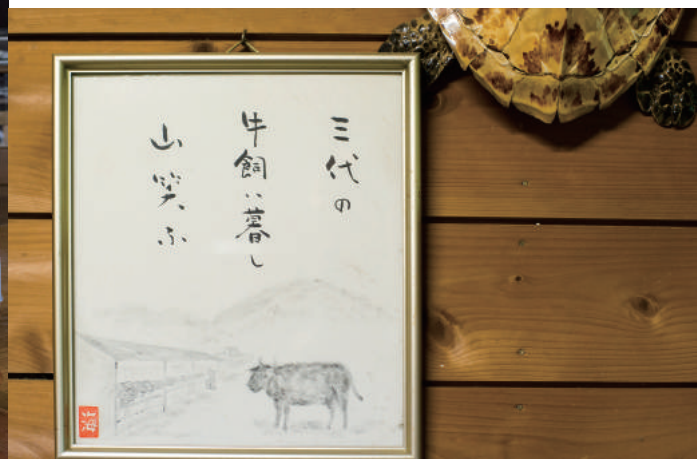 三代の
牛飼い暮し
山笑ふ
山海